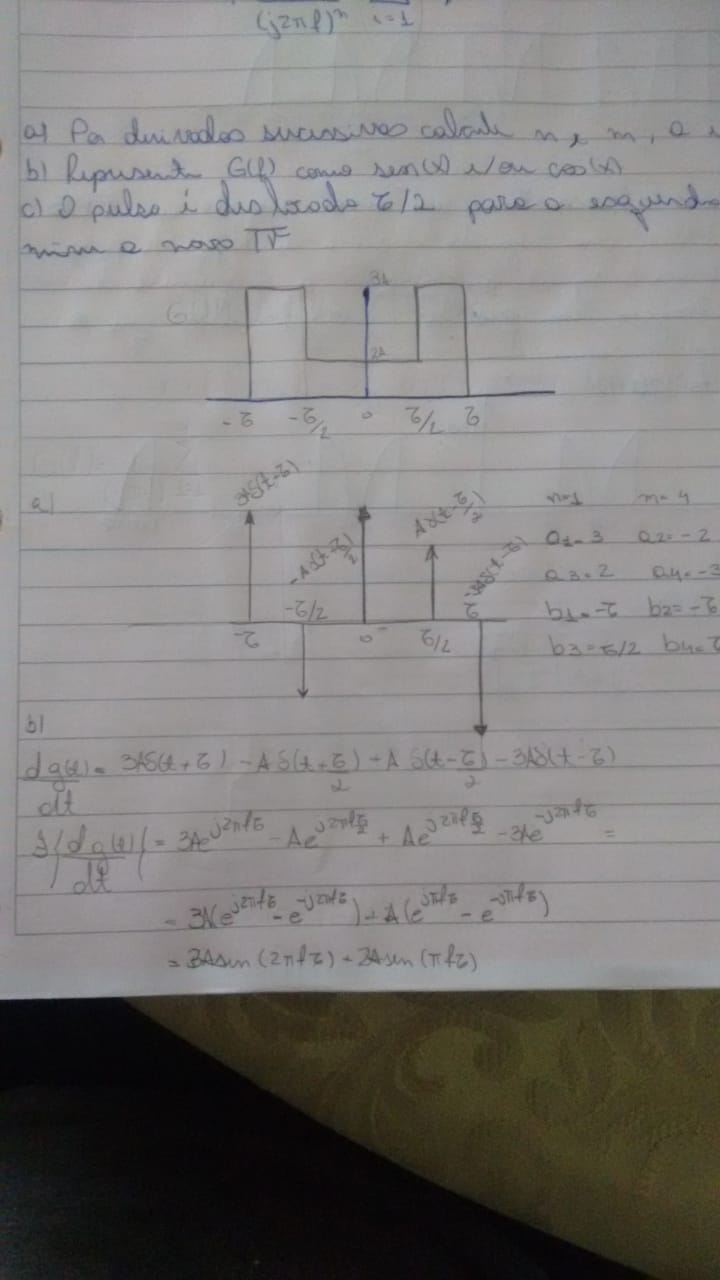 (j2πf)ⁿ i=1
a) Por derivadas sucessivas calcule n, m, a
b) Represente G(f) como sen(x) e/ou cos(x)
c) O pulso é deslocado τ/2 para a esquerda
mine a nova TF
3A
2A
-τ -τ/2 0 τ/2 τ
a) 3Aδ(t+τ) -Aδ(t+τ/2) Aδ(t-τ/2) -3Aδ(t-τ) n=1 m=4
a1=3 a2=-2
a3=2 a4=-3
b1=-τ b2=-τ
b3=τ/2 b4=τ
-τ -τ/2 0 τ/2 τ
b)
dg(t)/dt = 3Aδ(t+τ) - Aδ(t+τ/2) + Aδ(t-τ/2) - 3Aδ(t-τ)
ℱ{dg(t)/dt} = 3Ae^j2πfτ - Ae^j2πfτ/2 + Ae^j2πfτ/2 - 3Ae^-j2πfτ =
= 3A(e^j2πfτ - e^-j2πfτ) + A(e^jπfτ - e^-jπfτ)
= 3Asen(2πfτ) + 2Asen(πfτ)